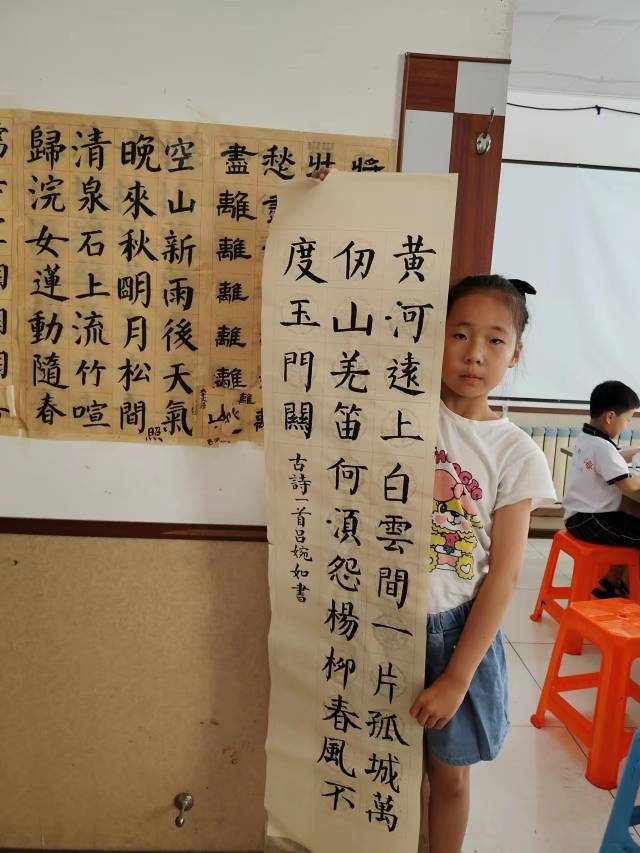 黄河遠上白雲間一片孤城萬
仞山羌笛何湏怨楊柳春風不
度玉門關
古詩一首吕婉如書
將
壯
愁
盡離離離離離
空山新雨後天氣
晚來秋明月松間照
清泉石上流竹喧
歸浣女蓮動隨春